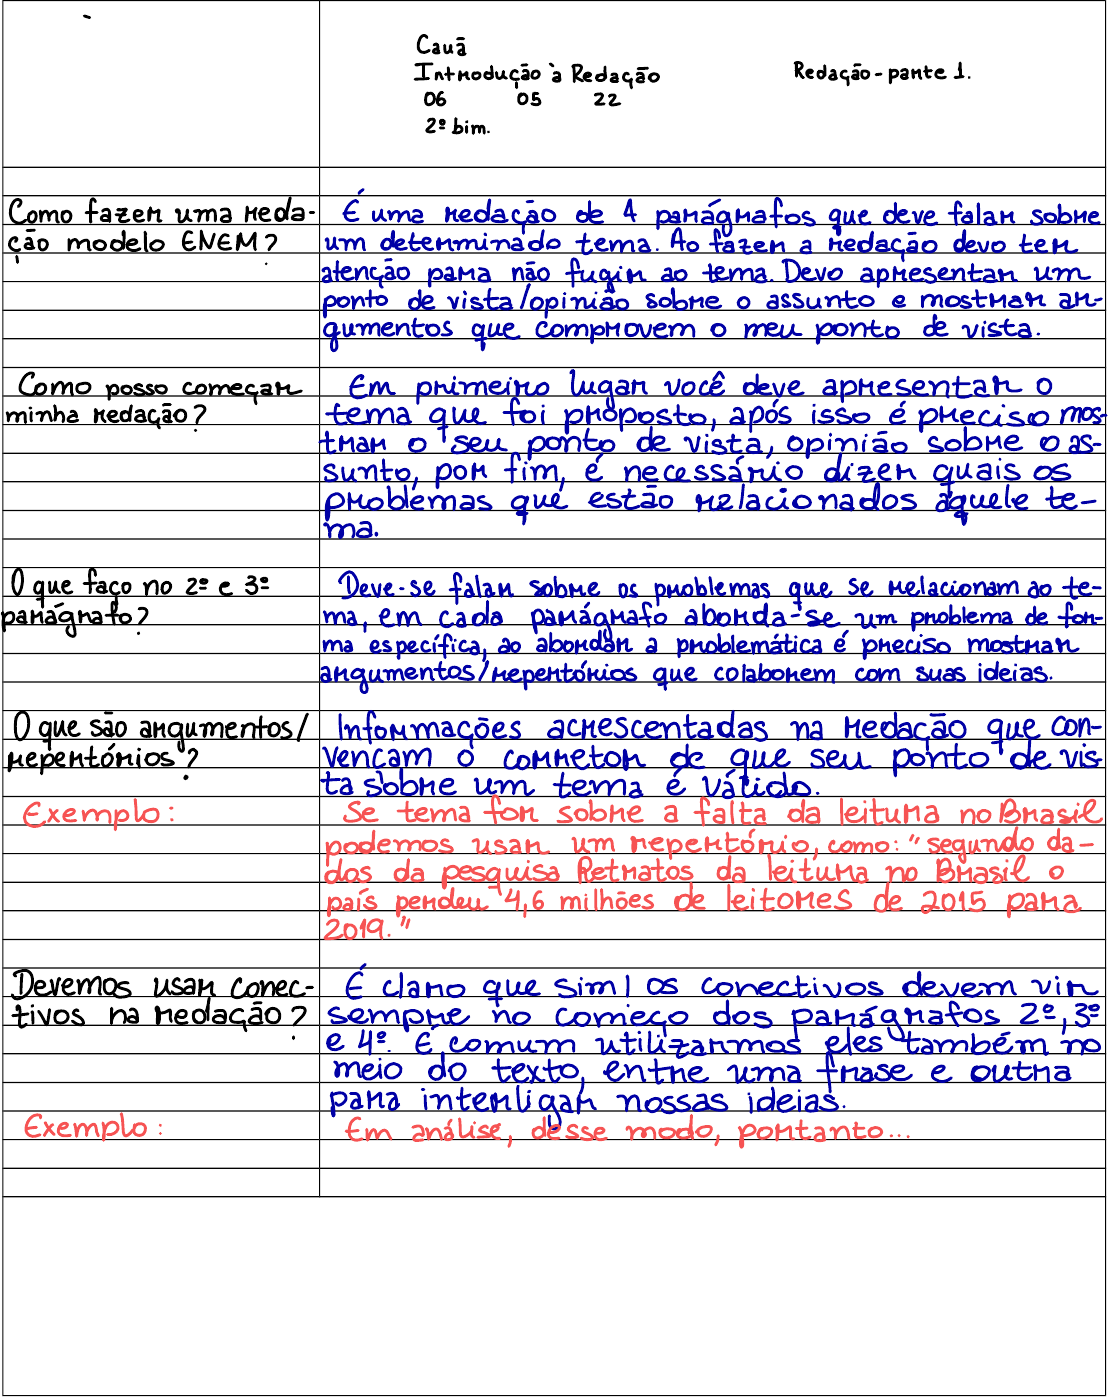 Cauã
Introdução à Redação
Redação - parte 1.
06 05 22
2º bim.
Como fazer uma reda-
ção modelo ENEM?
É uma redação de 4 parágrafos que deve falar sobre
um determinado tema. Ao fazer a redação devo ter
atenção para não fugir ao tema. Devo apresentar um
ponto de vista/opinião sobre o assunto e mostrar ar-
gumentos que comprovem o meu ponto de vista.
Como posso começar
minha redação?
Em primeiro lugar você deve apresentar o
tema que foi proposto, após isso é preciso mos-
trar o seu ponto de vista, opinião sobre o as-
sunto, por fim, é necessário dizer quais os
problemas que estão relacionados àquele te-
ma.
O que faço no 2º e 3º
parágrafo?
Deve-se falar sobre os problemas que se relacionam ao te-
ma, em cada parágrafo aborda-se um problema de for-
ma específica, ao abordar a problemática é preciso mostrar
argumentos/repertórios que colaborem com suas ideias.
O que são argumentos/
repertórios?
Informações acrescentadas na redação que con-
vençam o corretor de que seu ponto de vis-
ta sobre um tema é válido.
Exemplo:
Se tema for sobre a falta da leitura no Brasil
podemos usar um repertório, como: "segundo da-
dos da pesquisa Retratos da leitura no Brasil o
país perdeu 4,6 milhões de leitores de 2015 para
2019."
Devemos usar conec-
tivos na redação?
É claro que sim! os conectivos devem vir
sempre no começo dos parágrafos 2º, 3º
e 4º. É comum utilizarmos eles também no
meio do texto, entre uma frase e outra
para interligar nossas ideias.
Exemplo:
Em análise, desse modo, portanto...